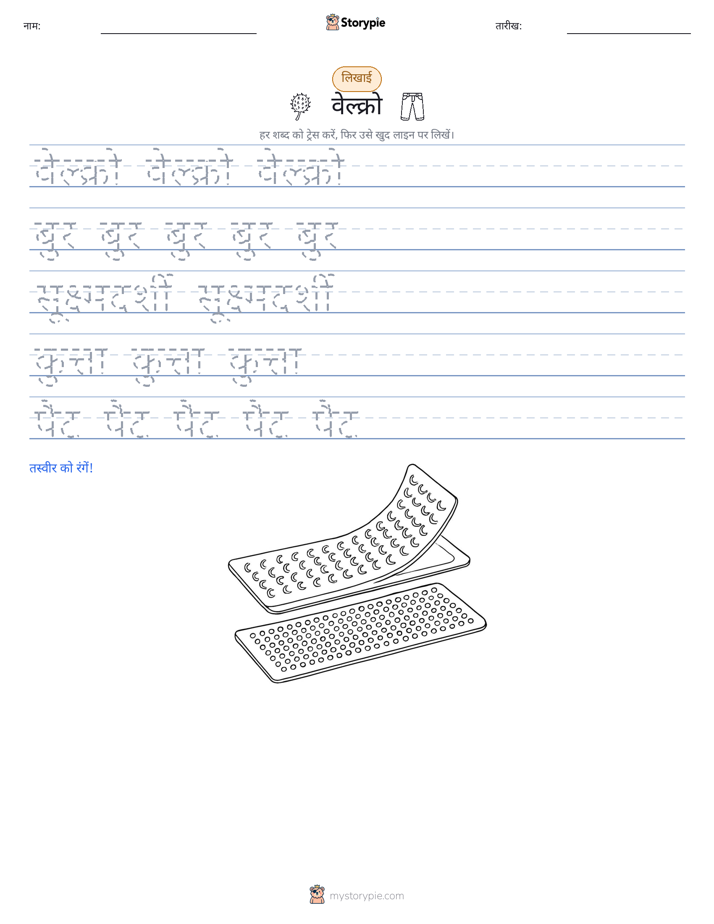 नाम:
Storypie
तारीख:
लिखाई
वेल्क्रो
हर शब्द को ट्रेस करें, फिर उसे खुद लाइन पर लिखें।
वेल्क्रो वेल्क्रो वेल्क्रो
बुर बुर बुर बुर बुर
सूक्ष्मदर्शी सूक्ष्मदर्शी
कुत्ता कुत्ता कुत्ता
पैंट पैंट पैंट पैंट पैंट
तस्वीर को रंगें!
mystorypie.com